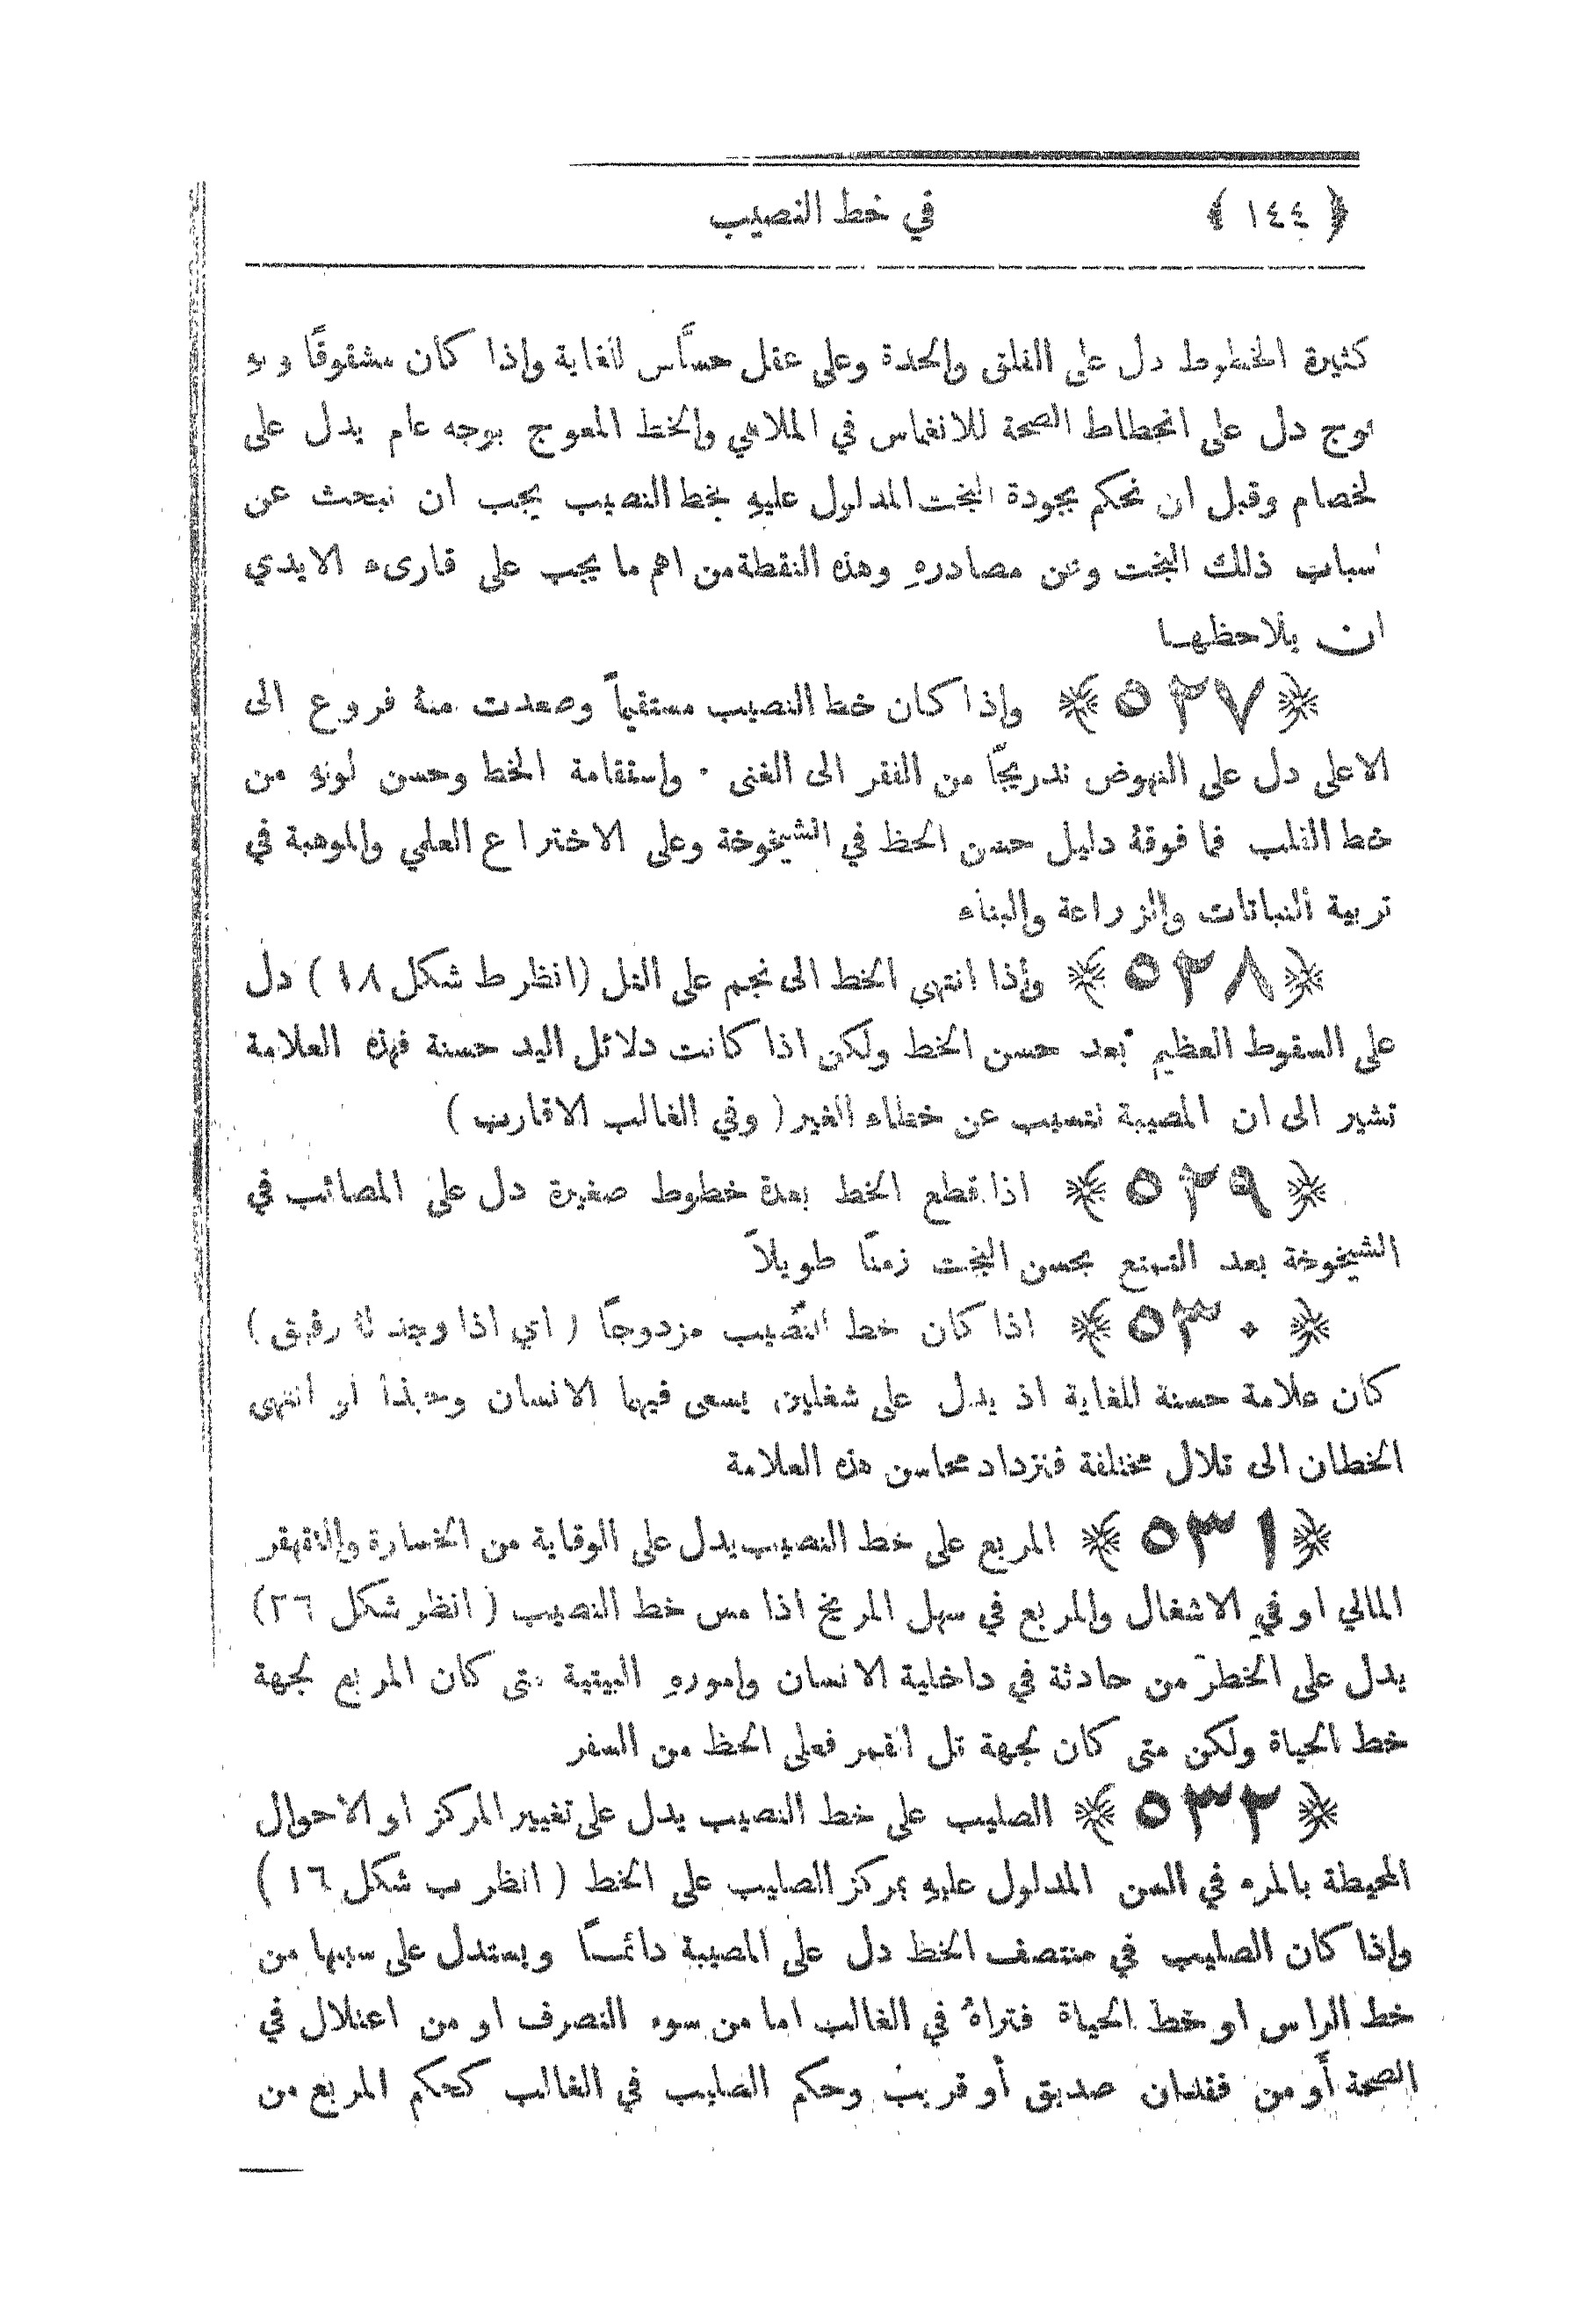 ﴿ ١٤٤ ﴾ في خط النصيب
كثيرة الخطوط دل على القلق والحدة وعلى عقل حساس للغاية وإذا كان مشقوقًا و
وج دل على انحطاط الصحة للانغماس في الملاهي والخط المعوج بوجه عام يدل على
لخصام وقبل ان نحكم بجودة البخت المدلول عليهِ بخط النصيب يجب ان نبحث عن
سباب ذلك البخت وعن مصادرهِ وهذه النقطة من اهم ما يجب على قارىء الايدي
ان يلاحظهـا
﴿٥٢٧﴾ وإذا كان خط النصيب مستقيماً وصعدت منهُ فروع الى
الاعلى دل على النهوض تدريجًا من الفقر الى الغنى ٠ وإستقامة الخط وحسن لونهِ من
خط القلب فما فوقهُ دليل حسن الحظ في الشيخوخة وعلى الاختراع العلمي والموهبة في
تربية النباتات والزراعة والبناء
﴿٥٢٨﴾ وإذا انتهى الخط الى نجم على التل (انظر ط شكل ١٨) دل
على السقوط العظيم بعد حسن الخط ولكن اذا كانت دلائل اليد حسنة فهذه العلامة
تشير الى ان المصيبة تتسبب عن خطاء الغير (وفي الغالب الاقارب)
﴿٥٢٩﴾ اذا قطع الخط بعدة خطوط صغيرة دل على المصائب في
الشيخوخة بعد التمتع بحسن البخت زمنًا طويلاً
﴿٥٣٠﴾ اذا كان خط النصيب مزدوجًا (اي اذا وجد لهُ رفيق)
كان علامة حسنة للغاية اذ يدل على شغلين يسعى فيهما الانسان وحبذا لو انتهى
الخطان الى تلال مختلفة فتزداد محاسن هذه العلامة
﴿٥٣١﴾ المربع على خط النصيب يدل على الوقاية من الخسارة والتقهقر
المالي او في الاشغال والمربع في سهل المريخ اذا مس خط النصيب (انظر شكل ٢٦)
يدل على الخطر من حادثة في داخلية الانسان وامورهِ البيتية متى كان المربع لجهة
خط الحياة ولكن متى كان لجهة تل القمر فعلى الحظ من السفر
﴿٥٣٢﴾ الصليب على خط النصيب يدل على تغيير المركز او الاحوال
المحيطة بالمرء في السن المدلول عليهِ بمركز الصليب على الخط (انظر ب شكل ١٦)
وإذا كان الصليب في منتصف الخط دل على المصيبة دائمـًا ويستدل على سببها من
خط الراس او خط الحياة فتراهُ في الغالب اما من سوء التصرف او من اعتلال في
الصحة أو من فقدان صديق أو قريب وحكم الصليب في الغالب كحكم المربع من